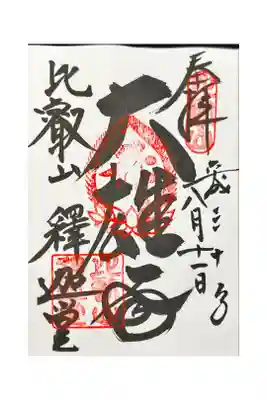 奉拝
平成三十年
八月十一日
大雄殿
比叡山 釋迦堂